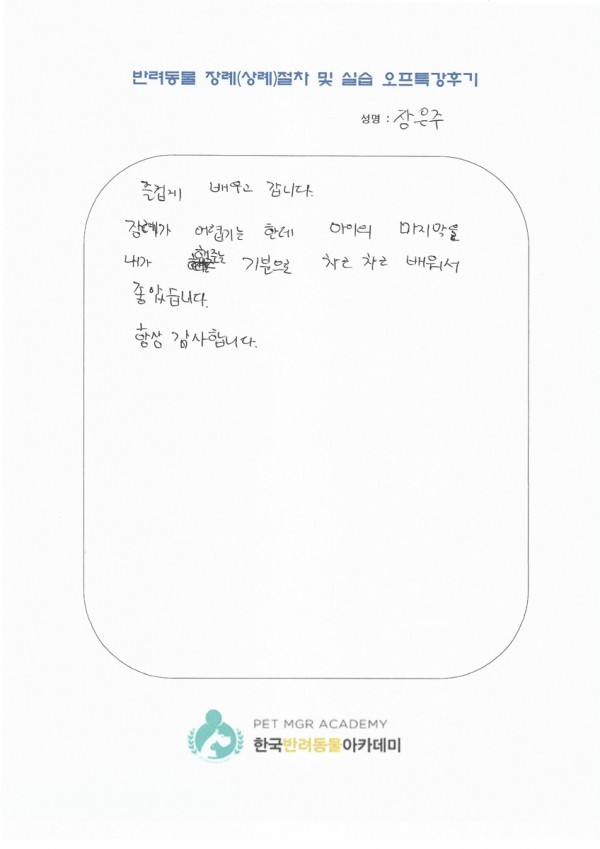 반려동물 장례(상례)절차 및 실습 오프특강후기
성명 : 장은주
즐겁게 배우고 갑니다.
장례가 어렵기는 한데 아이의 마지막을
내가 해주는 기분으로 차근 차근 배워서
좋았습니다.
항상 감사합니다.
PET MGR ACADEMY
한국반려동물아카데미